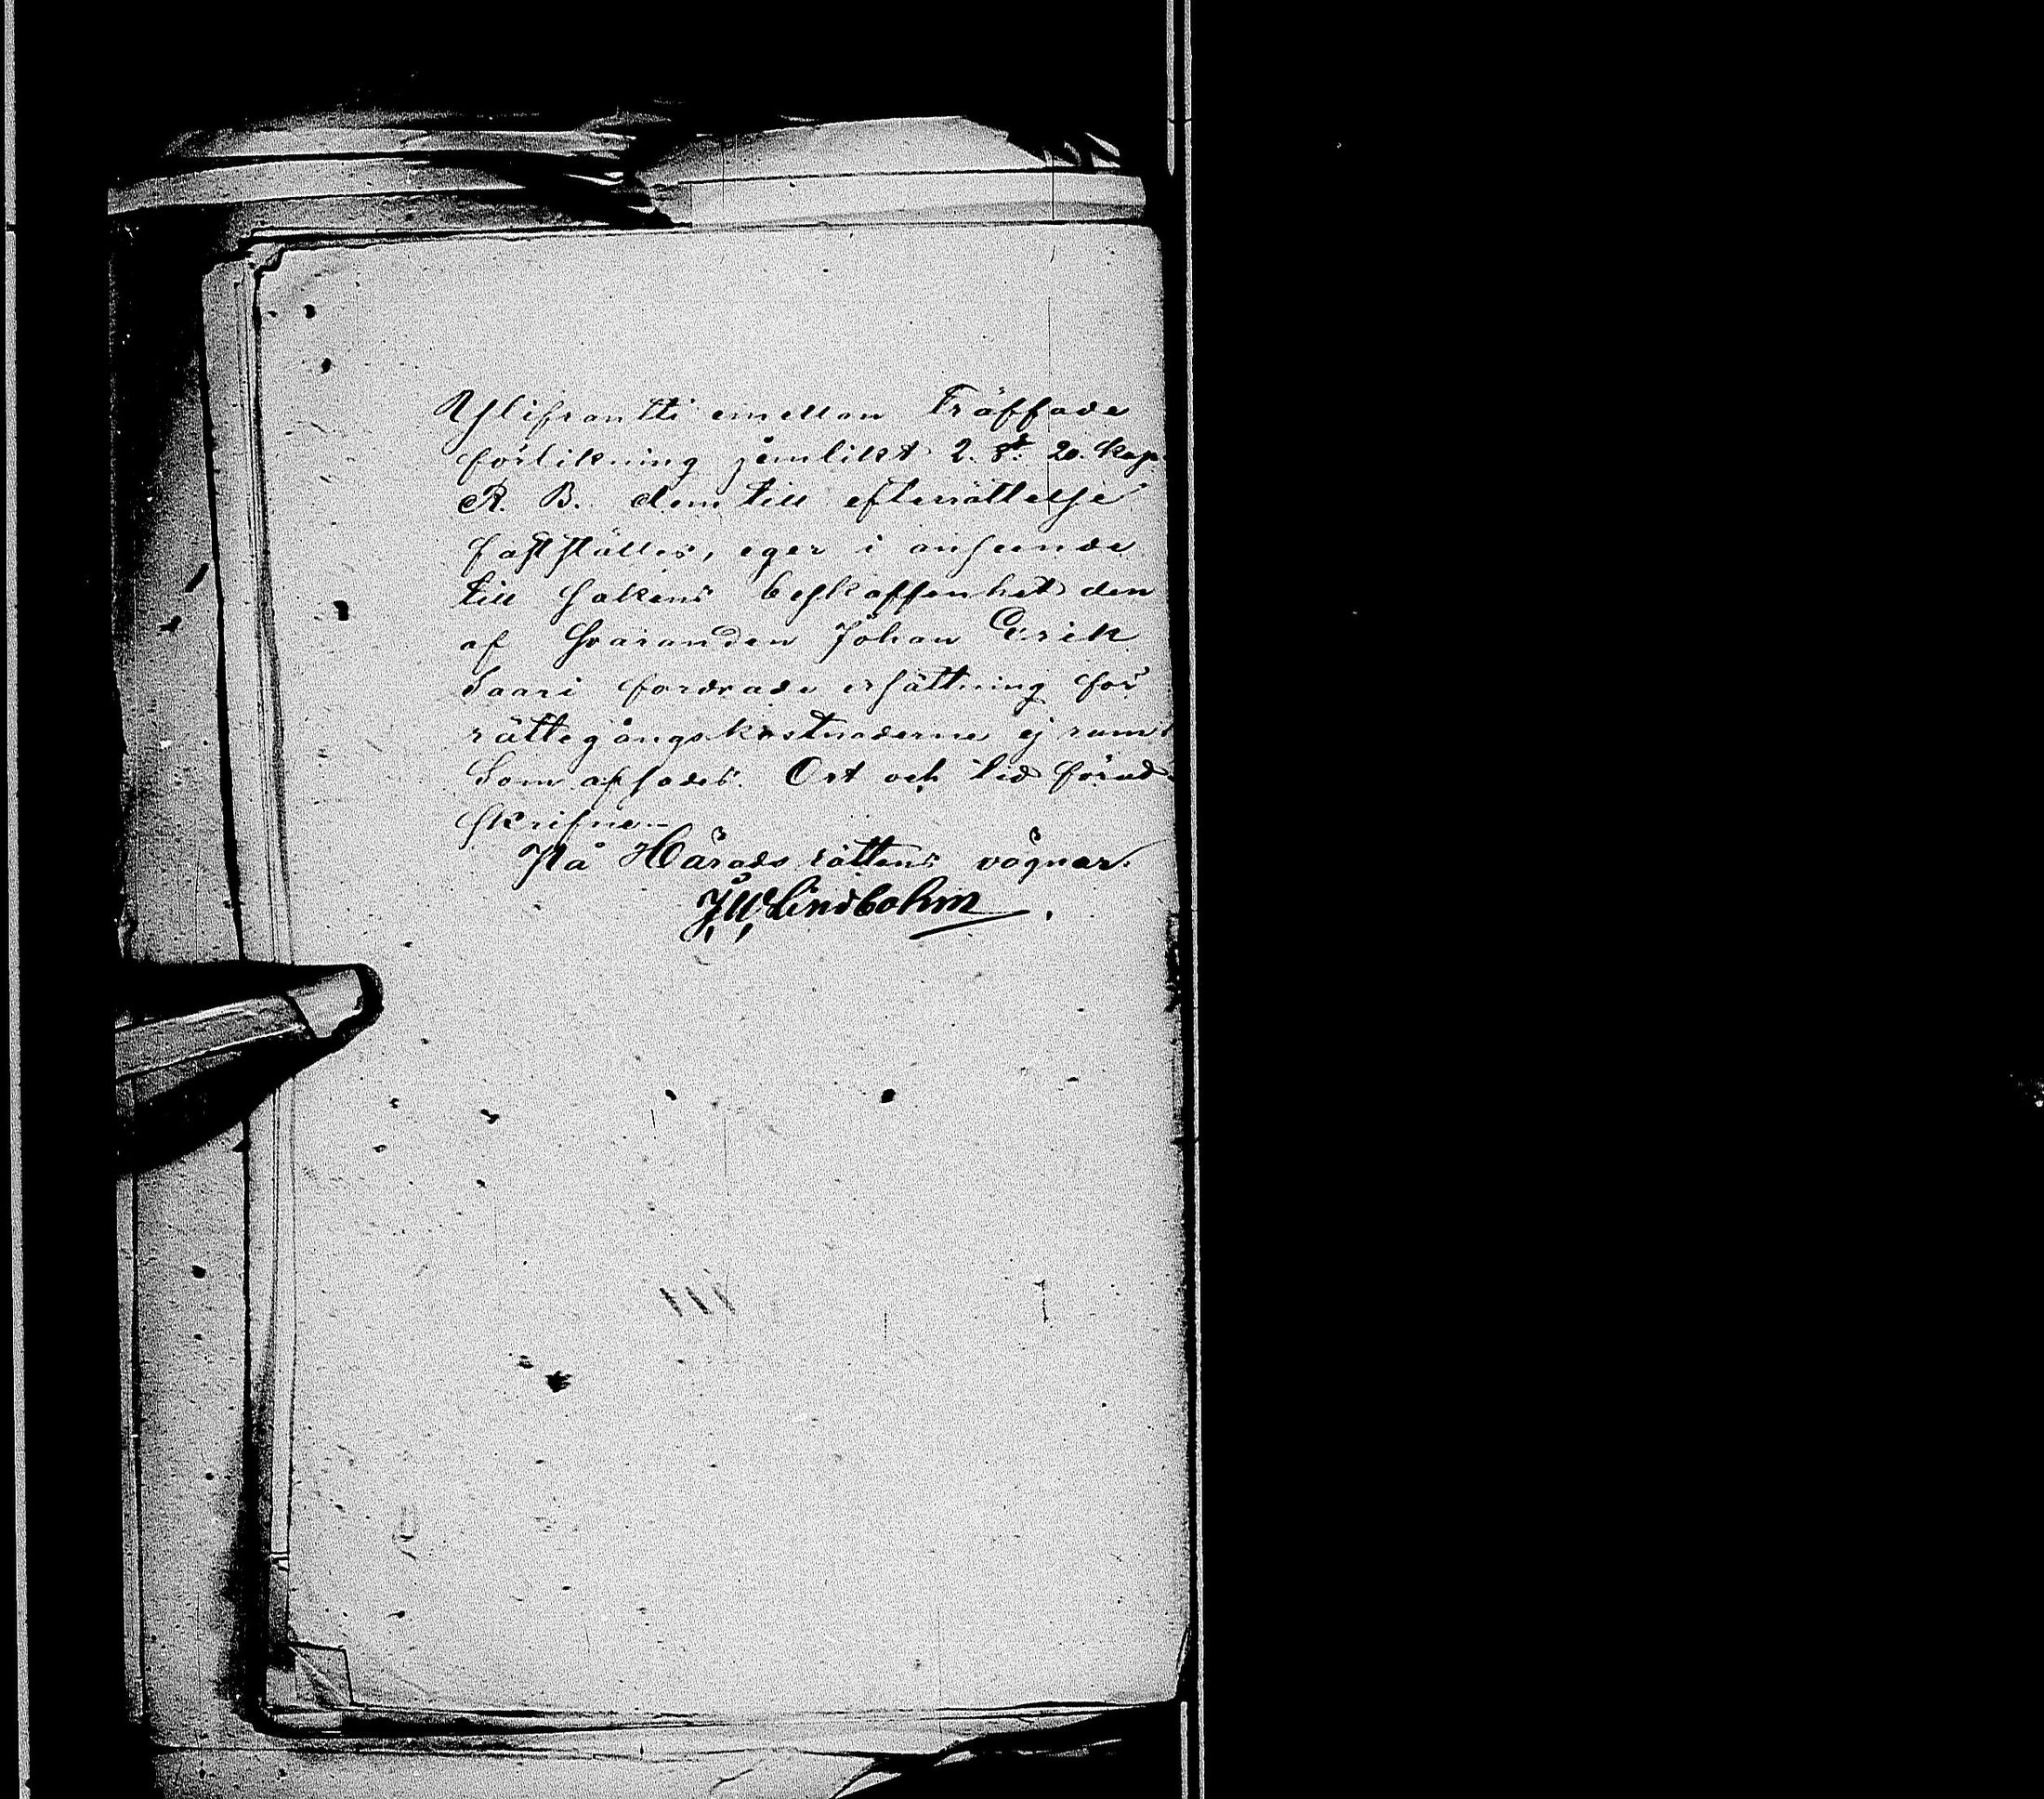 Ylifrantti emellan träffade
förlikning jemlikt 2. §. 20. Kap.
R. B. dem till efterrättelse
fastställes, eger i anseende
till sakens beskaffenhet den
af Svaranden Johan Erik
Saari fordrade ersättning för
rättegångskostnaderne ej rum.
Som afsades. Ort och tid förut
skrifne.
På Häradsrättens vägnar:
J W Lindbohm